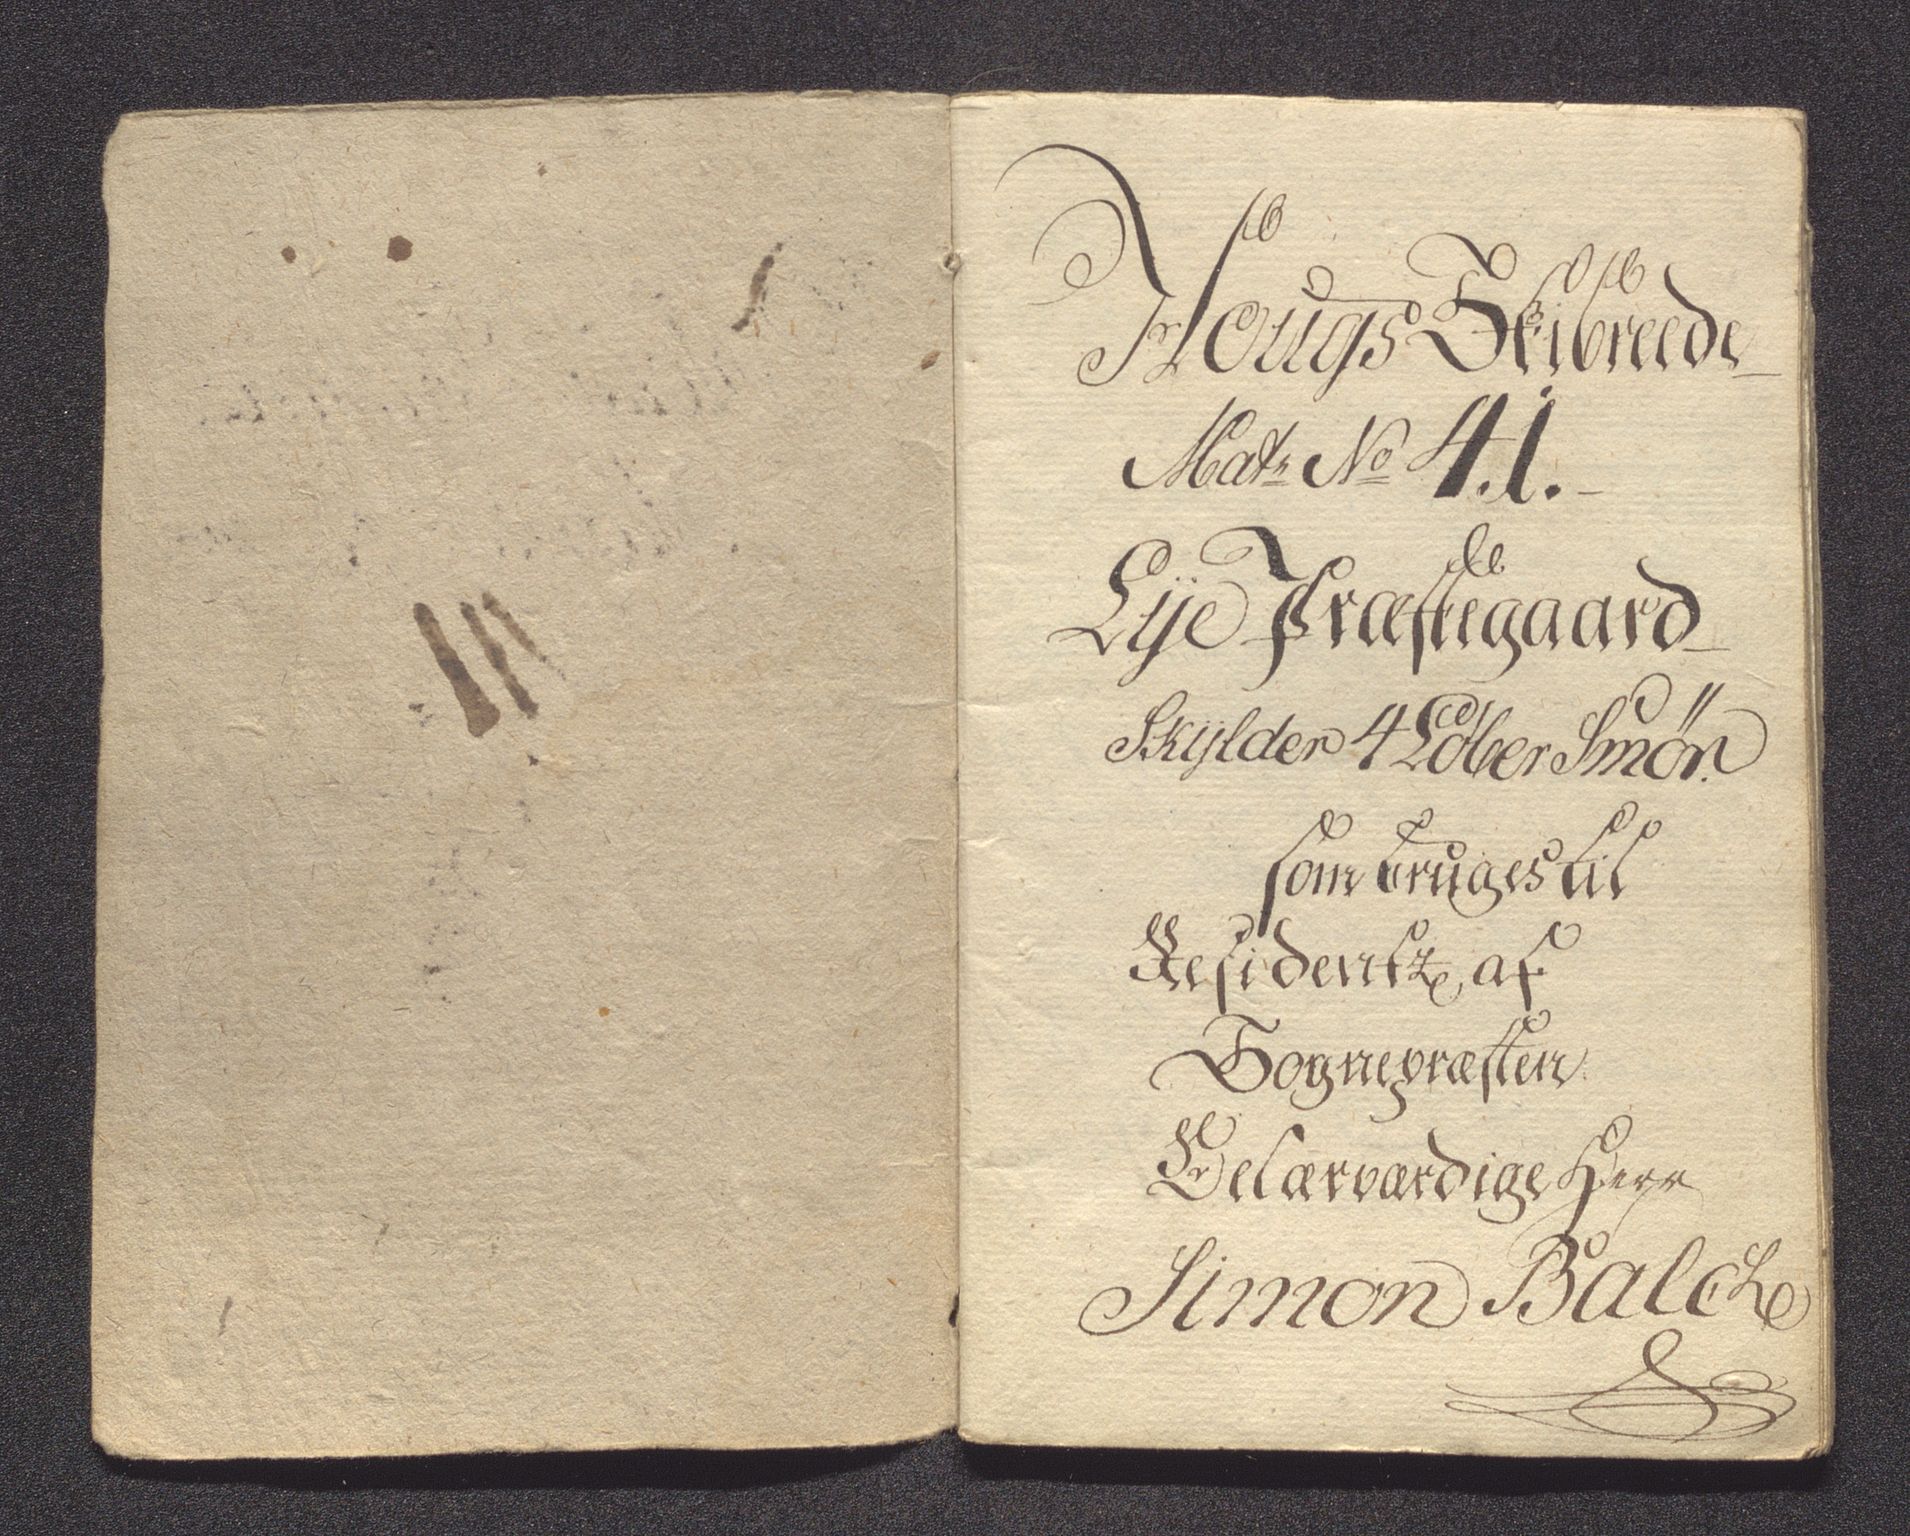 Hougs Skibreede
Matr No 41.
Lye Præstegaard
Skylder 4 Løber Smør.
som bruges til
Residentz af
Sognepræsten
Velærværdige Herr
Simon Balck